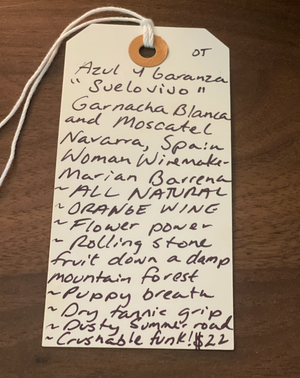 OT
Azul y Garanza
"Suelovivo"
Garnacha Blanca
and Moscatel
Navarra, Spain
Woman Winemaker
Marian Barrena
~ ALL NATURAL
~ ORANGE WINE
~ Flower power
~ Rolling stone
fruit down a damp
mountain forest
~ Puppy breath
~ Dry tannic grip
~ Dusty Summer road
~ Crushable funk! $22